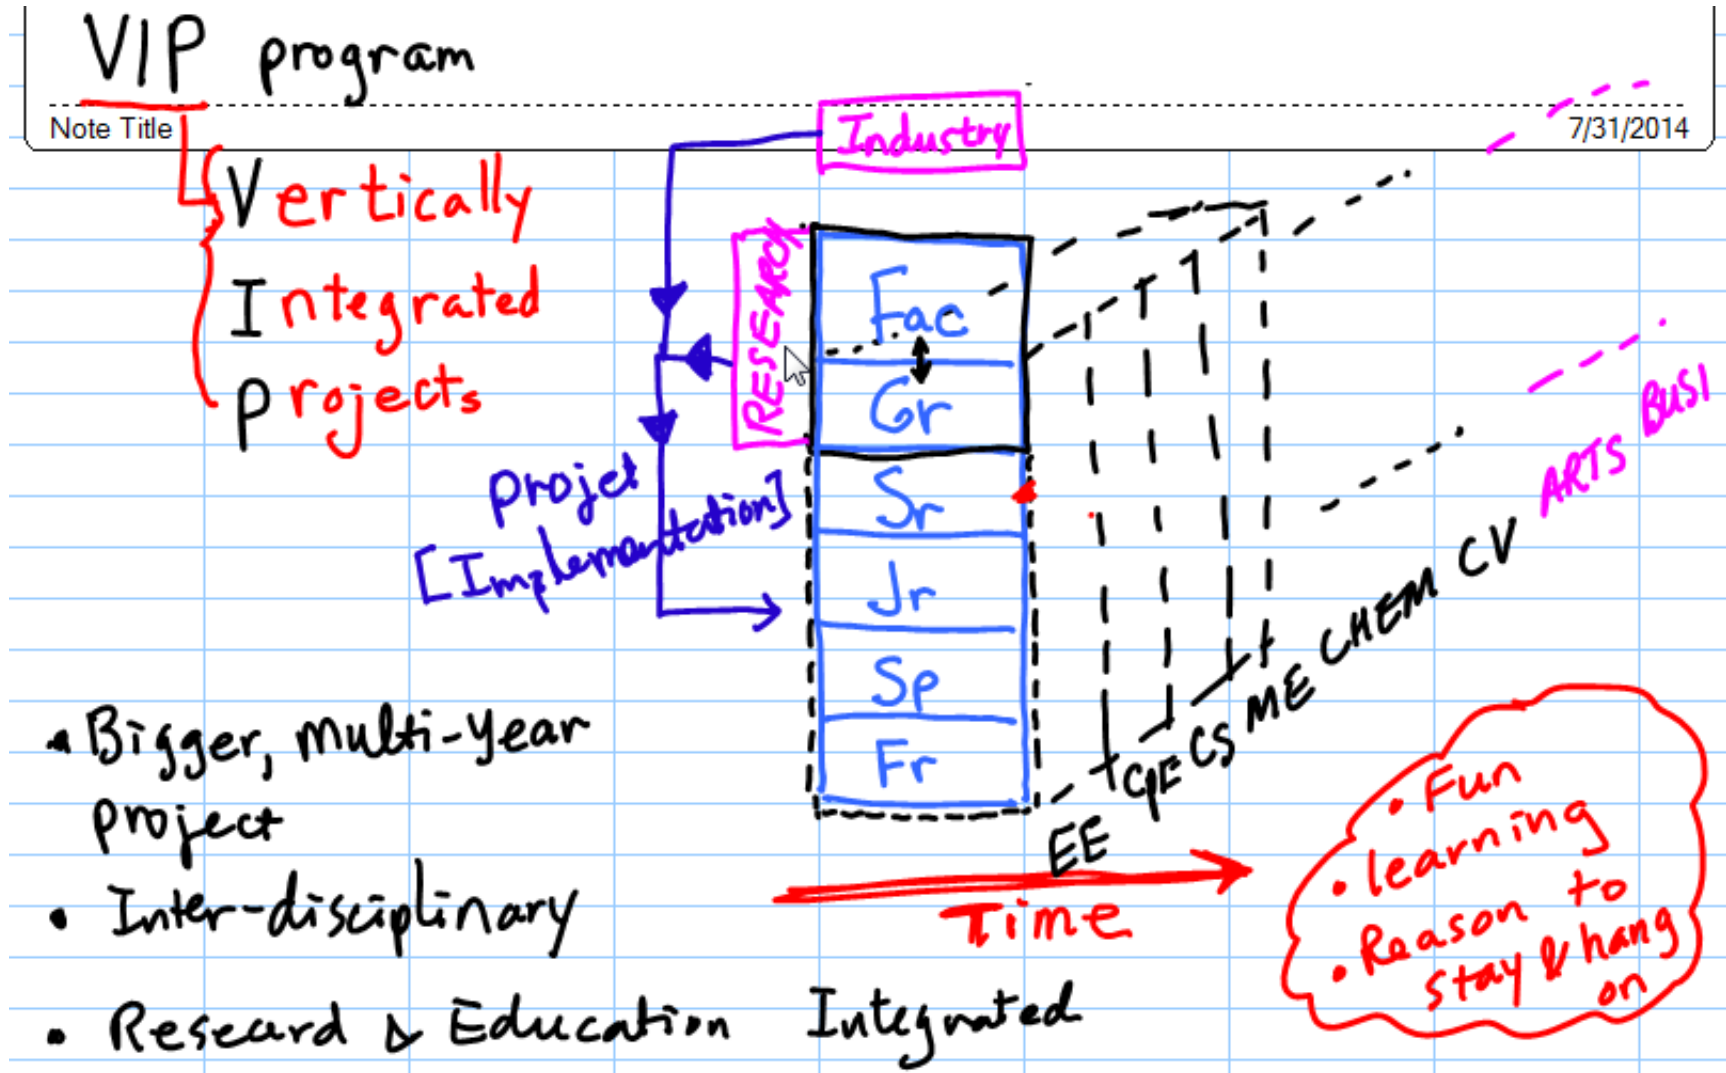 VIP program
Note Title
7/31/2014
Vertically
Integrated
Projects
Industry
RESEARCH
Fac
Gr
Sr
Jr
Sp
Fr
projet
[Implementation]
EE CPE CS ME CHEM CV ARTS BUSI
Time
• Bigger, multi-year
project
• Inter-disciplinary
• Researd & Education Integrated
• Fun
• learning
• Reason to
stay & hang
on